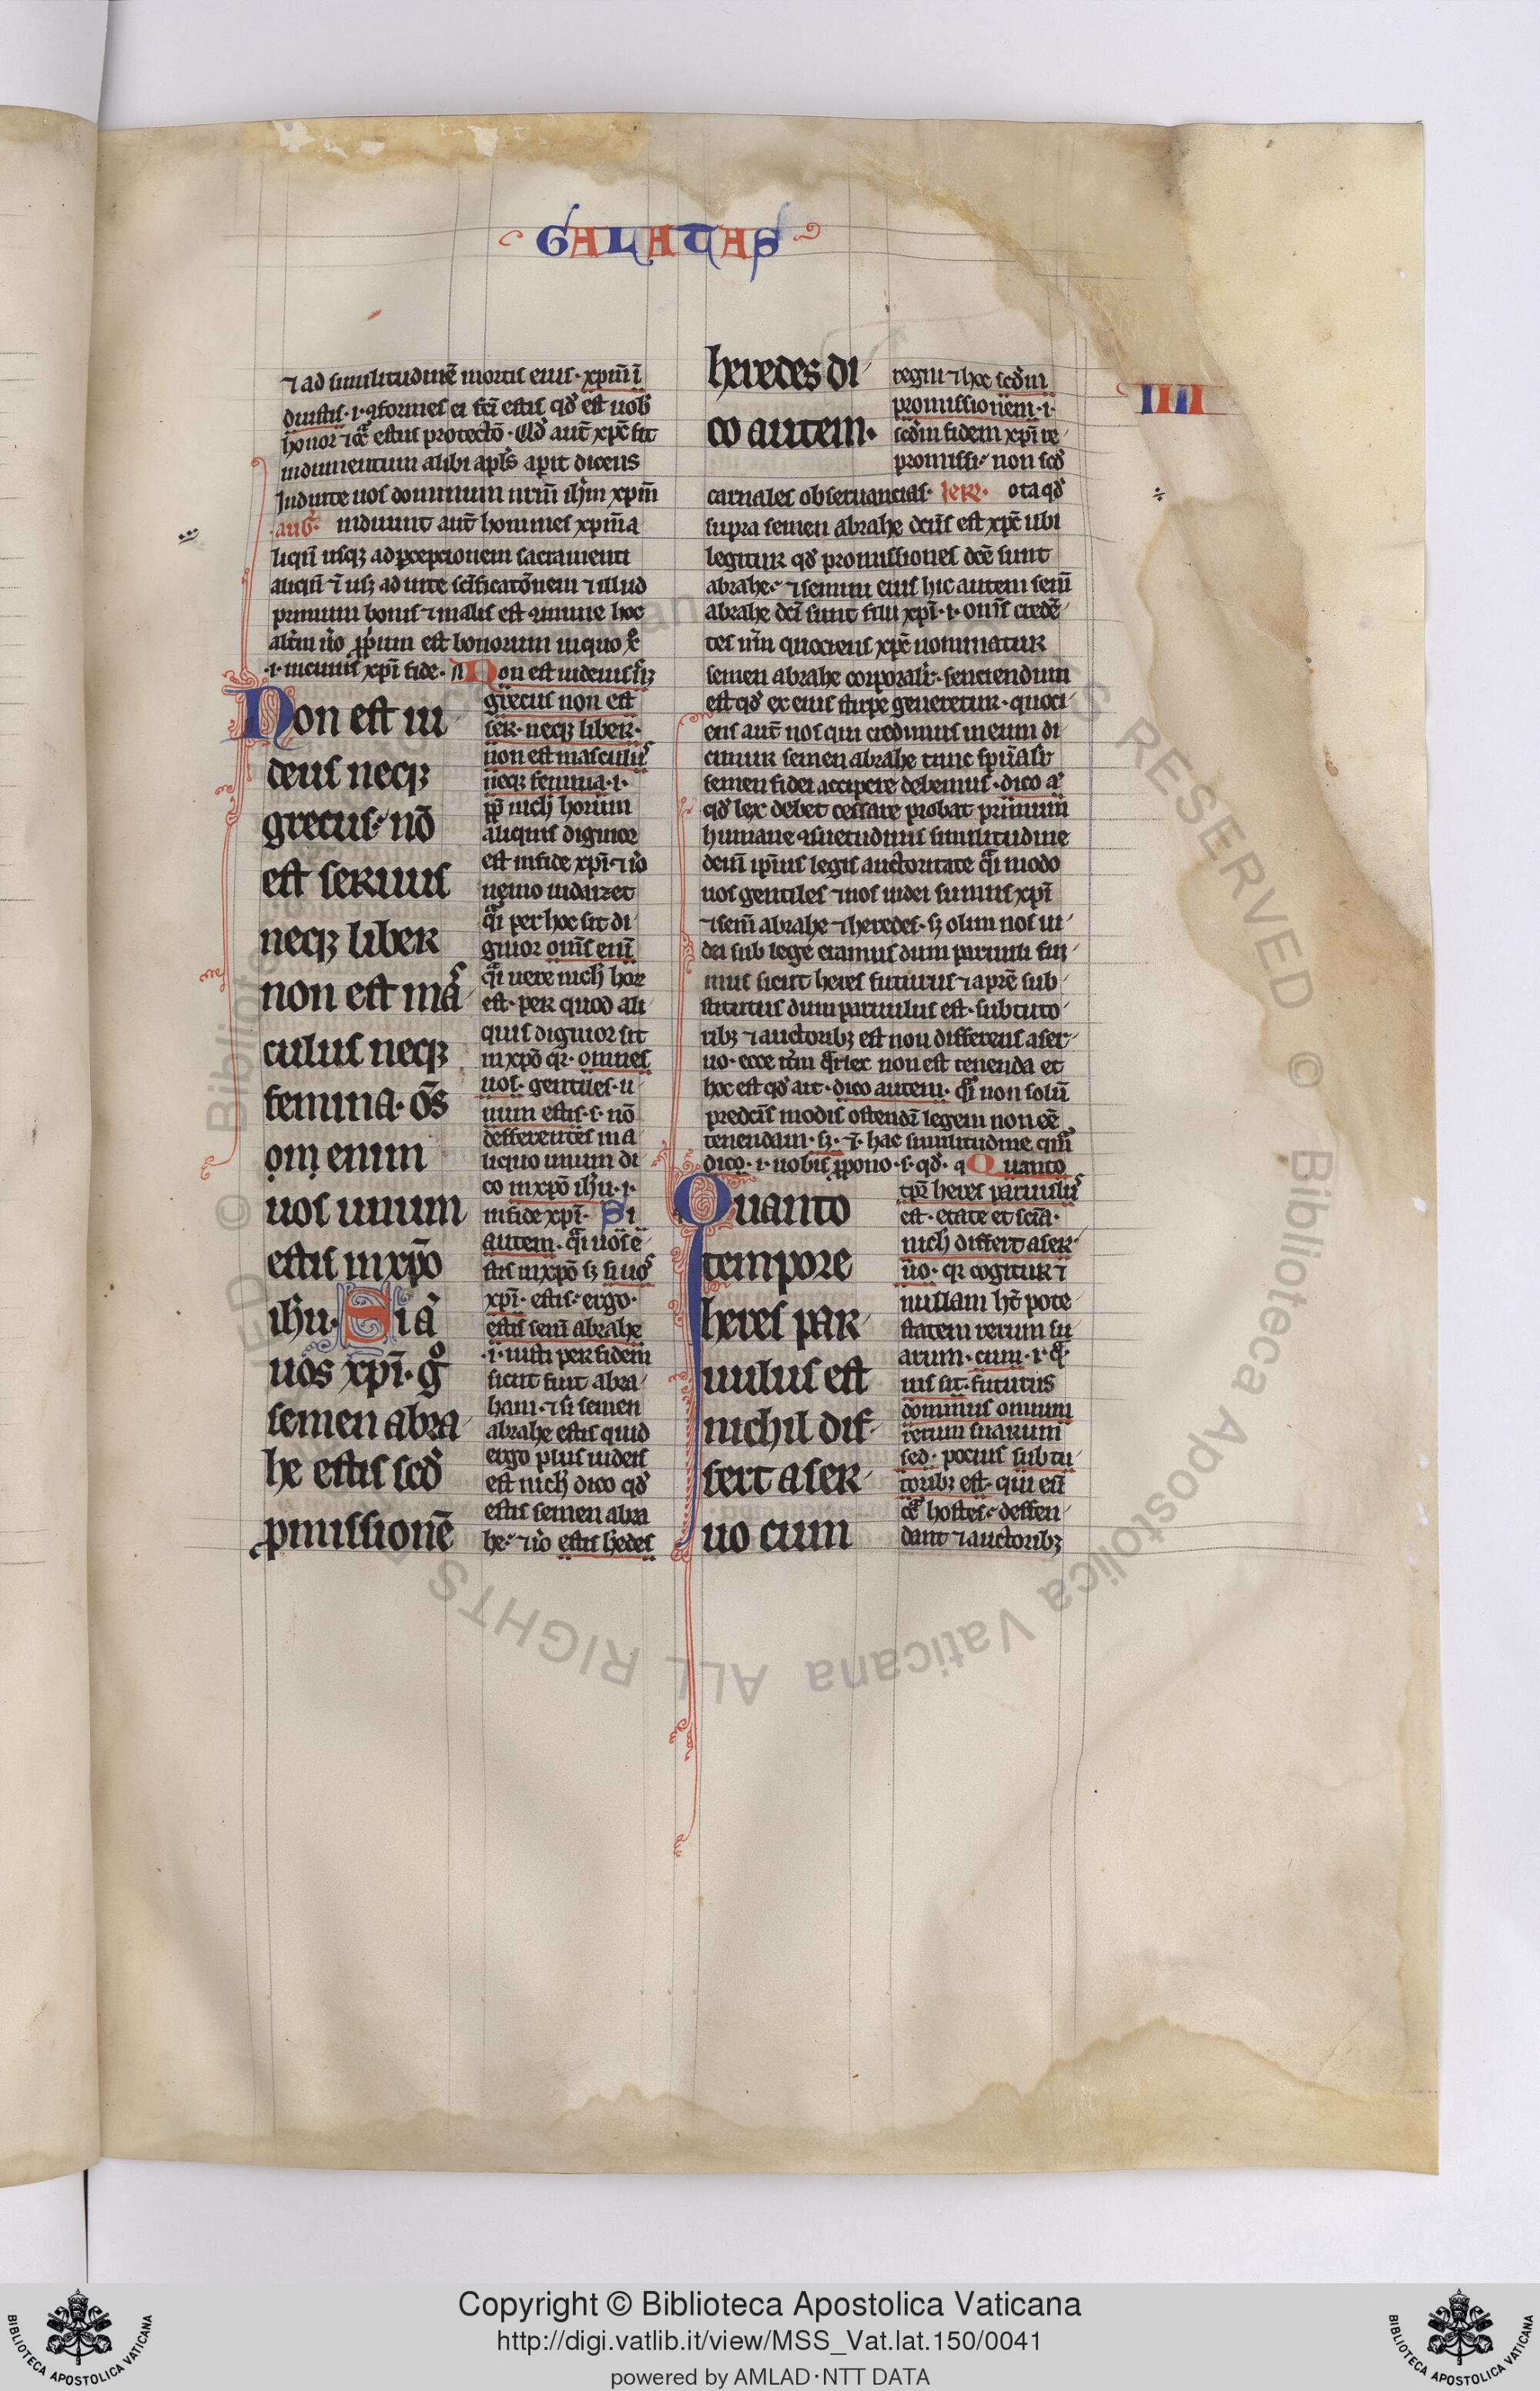 GALATAS
IIII
⁊ ad similitudinē mortis eius· xpm̄ ī
duistis· i· ꝯformes ei fc̄i estis qd̓ est uob̓
honor ⁊ estus protectō· Qd̓ aut̄ xpc̄ sit
indumentum alibi apl̓s apit dicens
Induite uos dominum nrm̄ ih̄m xpm̄
aug̓· induunt aut̄ homines xpm̄ a
liqn̄ usqꝫ ad ꝑcepcionem sacramenti
aliqn̄ ⁊ usqꝫ ad uite sc̄ificatōnem ⁊ illud
primum bonis ⁊ malis est ꝯmune hoc
altm̄ u̓o ꝓp̓um est bonorum in quo
·i· in cuius xpi̅ fide· n̄ Non est iudeus
Non est iu
deus neqꝫ
grecus· nō
est seruus
neqꝫ liber
non est mas
culus neqꝫ
femina· ōs
om̄ enim
uos unum
estis in xp̄o
ih̄u· Si a̓
uos xpi̅· gͦ
semen abra
he estis scd̓
ꝓmissionē
grecus non est
ser· neqꝫ liber·
non est masculus
neqꝫ femina· i·
ꝓp̄ nich̓ horum
aliquis dignior
est in fide xpi̅· ⁊ iō
nemo iudaizet
q̄i per hoc sit di
gnior om̄s eni̅
q̄i uere nich̓ hor
est· per quod ali
quis dignior sit
in xp̄o qr· omnes
uos· gentiles· u
num estis· s· nō
defferentes in a
liquo unum di
co in xp̄o ih̄u· i·
in fide xpi̅· Si
autem· q̄i uos e
stis in xp̄o sꝫ si uos
xpi̅· estis· ergo·
estis sem̄ abrahe
·i· iusti per fidem
sicut fuit abra
ham· ⁊ si semen
abrahe estis quid
ergo plus iudeis
est nich̓ dico qd̓
estis semen abra
he· ⁊ iō estis h̓edes
heredes di
co autem·
regni ⁊ hoc scd̓m
promissionem· i·
scd̓m fidem xpi̅ re
promissi· non scd̓
carnales obseruancias· Ier· ota qd̓
supra semen abrahe dc̄us est xpc̄ ubi
legitur qd̓ promissiones dc̄e sunt
abrahe· ⁊ semini eius hic autem sem̄
abrahe dc̄i sunt filii xpi̅· i· om̄s credē
tes um̄ quociens xpc̄ nominatur
semen abrahe corporalr̄· senciendum
est qd̓ ex eius stirpe generetur· quoci
ens aut̄ nos qui credimus in eum di
cimur semen abrahe tunc spūalr̄
semen fidei accipere debemus· dico a̓
qd̓ lex debet cessare probat primum
humane ꝯsuetudinis similitudine
dein̄ ipi̅us legis auctoritate q̄i modo
uos gentiles ⁊ nos iudei sumus xpi̅
⁊ sem̄ abrahe ⁊ heredes· sꝫ olim nos iu
dei sub lege eramus dum paruuli fui
mus sicut heres futurus ⁊ a pr̄e sub
stitutus dum paruulus est· sub tuto
ribꝫ ⁊ auctoribꝫ est non differens a ser
uo· ecce itm̄ non est tenenda et
hoc est qd̓ ait· dico autem· q̄i non solū
predc̄is modis ostendi̅ legem non eē
tenendam· sꝫ· ⁊ hac similitudine
dico· i· uobis ꝓpono· s· qd̓· q Quanto
Quanto
tempore
heres par
uulus est
nichil dif
fert a ser
uo cum
tp̄r heres paruulus
est· etate et sc̄ia·
nich̓ differt a ser
uo· qr cogitur ⁊
nullam h̄t pote
statem rerum su
arum· cum· i·
uis sit· futurus
dominus omnium
rerum suarum
sed· pocius sub tu
toribꝫ est· qui eū
hostes· deffen
dant ⁊ auctoribꝫ
Copyright © Biblioteca Apostolica Vaticana
http://digi.vatlib.it/view/MSS_Vat.lat.150/0041
powered by AMLAD·NTT DATA